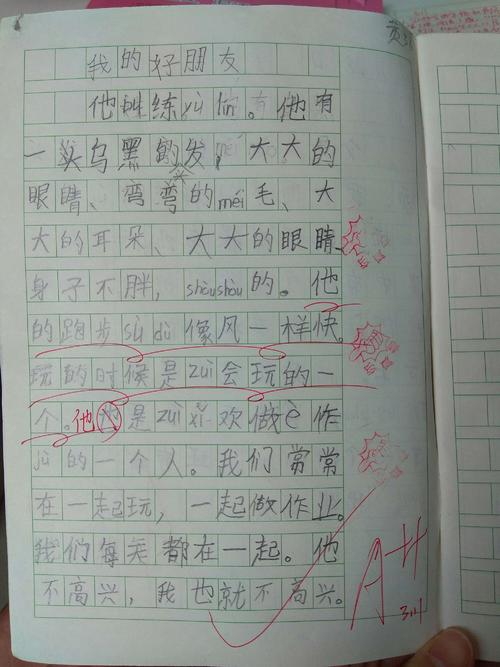 我的好朋友
他叫练yù 佤。他有
一头乌黑的发,大大的
头
眼睛、弯弯的méi毛、大
大的耳朵、大大的眼睛
身子不胖,shòushòu的。他
的跑步sù dù像风一样快。
玩的时候是zuì会玩的一
个。他是zuì xǐ欢做è作
jù的一个人。我们常常
在一起玩,一起做作业。
我们每天都在一起。他
不高兴,我也就不高兴。
A++